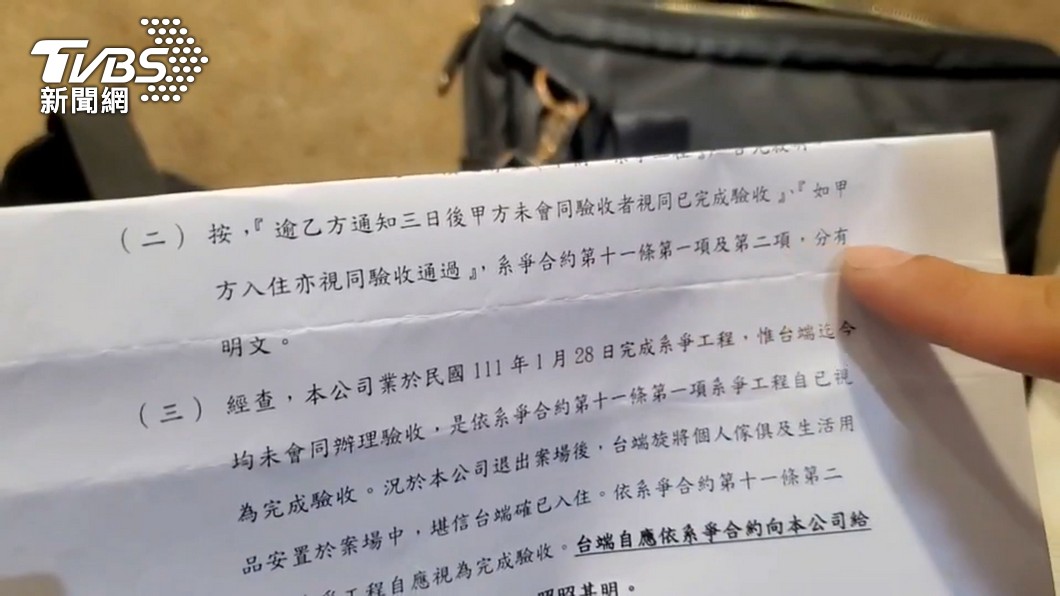 TVBS
新聞網
(二) 按，『逾乙方通知三日後甲方未會同驗收者視同已完成驗收』、『如甲
方入住亦視同驗收通過』，系爭合約第十一條第一項及第二項，分有
明文。
(三) 經查，本公司業於民國111年1月28日完成系爭工程，惟台端迄今
均未會同辦理驗收，是依系爭合約第十一條第一項系爭工程自已視
為完成驗收。況於本公司退出案場後，台端旋將個人傢俱及生活用
品安置於案場中，堪信台端確已入住。依系爭合約第十一條第二
爭工程自應視為完成驗收。台端自應依系爭合約向本公司給
昭昭甚明。